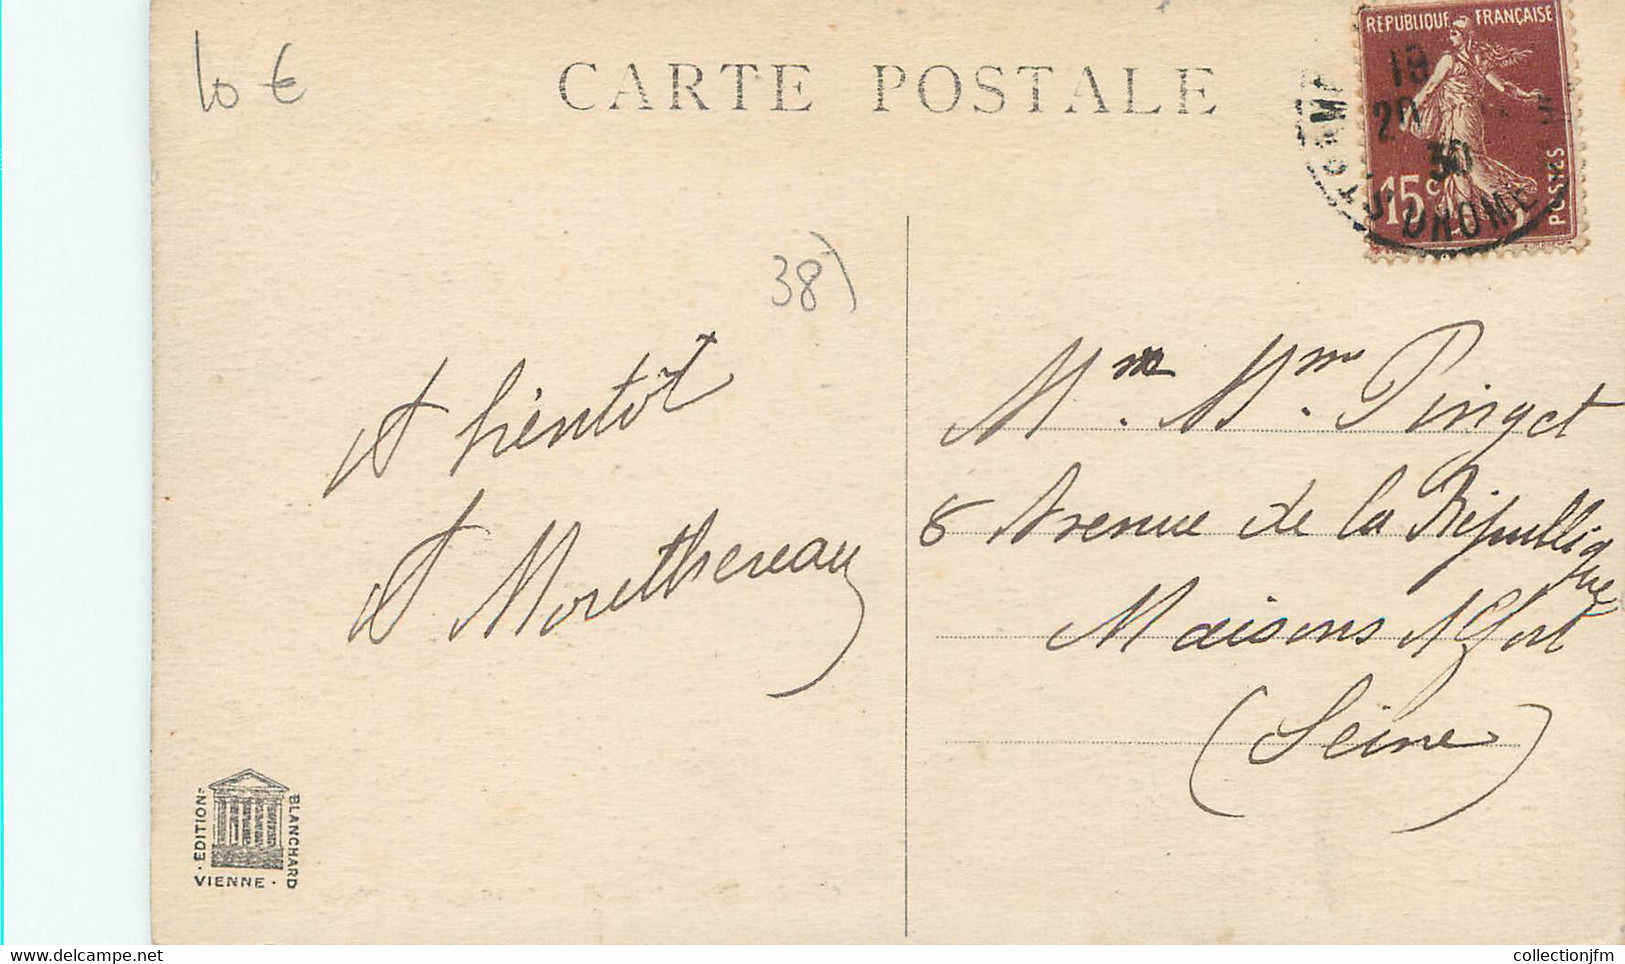 10 €
CARTE POSTALE
REPUBLIQUE FRANÇAISE
18
20
30
15c
POSTES
DROME
38)
A bientôt
Mr. Mme. Pinget
8 Avenue de la République
Maisons Alfort
(Seine)
EDITION BLANCHARD
VIENNE
collectionjfm